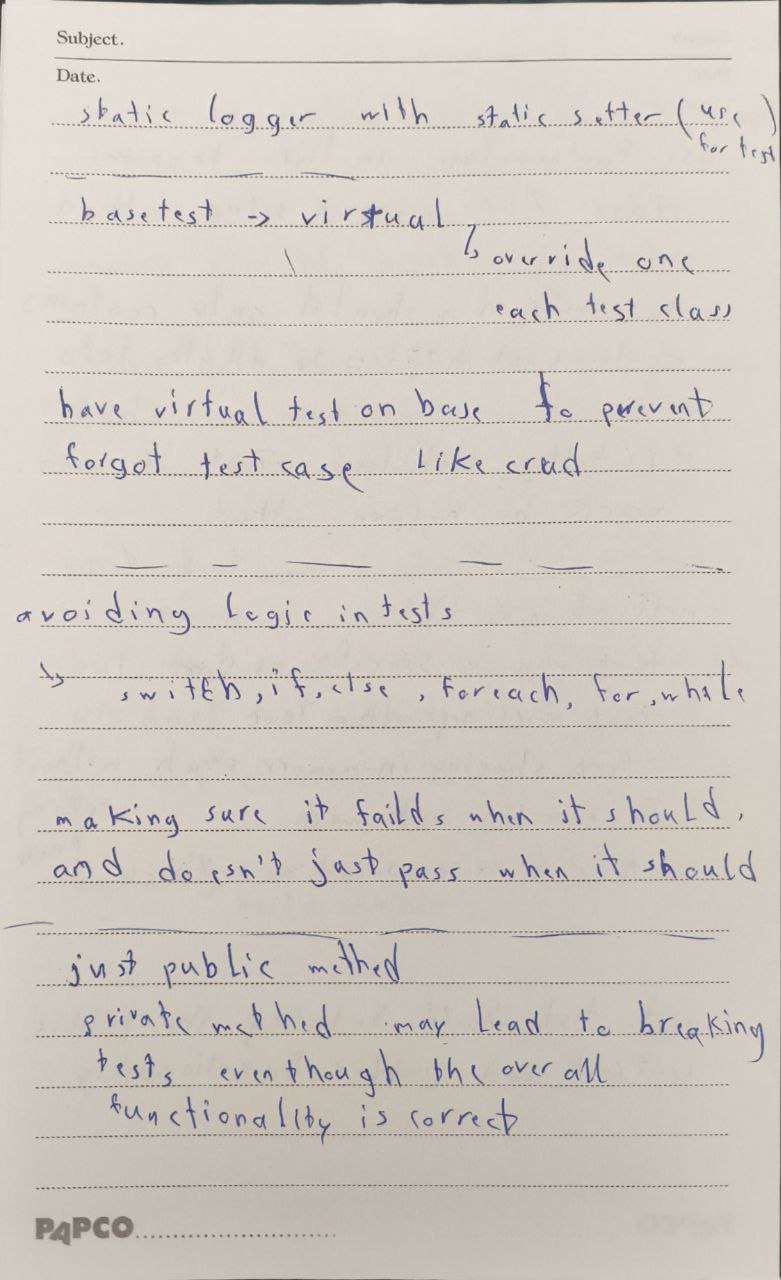 Subject.
Date.
static logger with static setter (use for test)
basetest -> virtual
↳ override one
each test class
have virtual test on base to perevent
forgot test case like crud
avoiding Logic in tests
↳ switch, if, else, foreach, for, while
making sure it failds when it should,
and doesn't just pass when it should
just public method
private method may Lead to breaking
tests even though the over all
functionality is correct
PAPCO